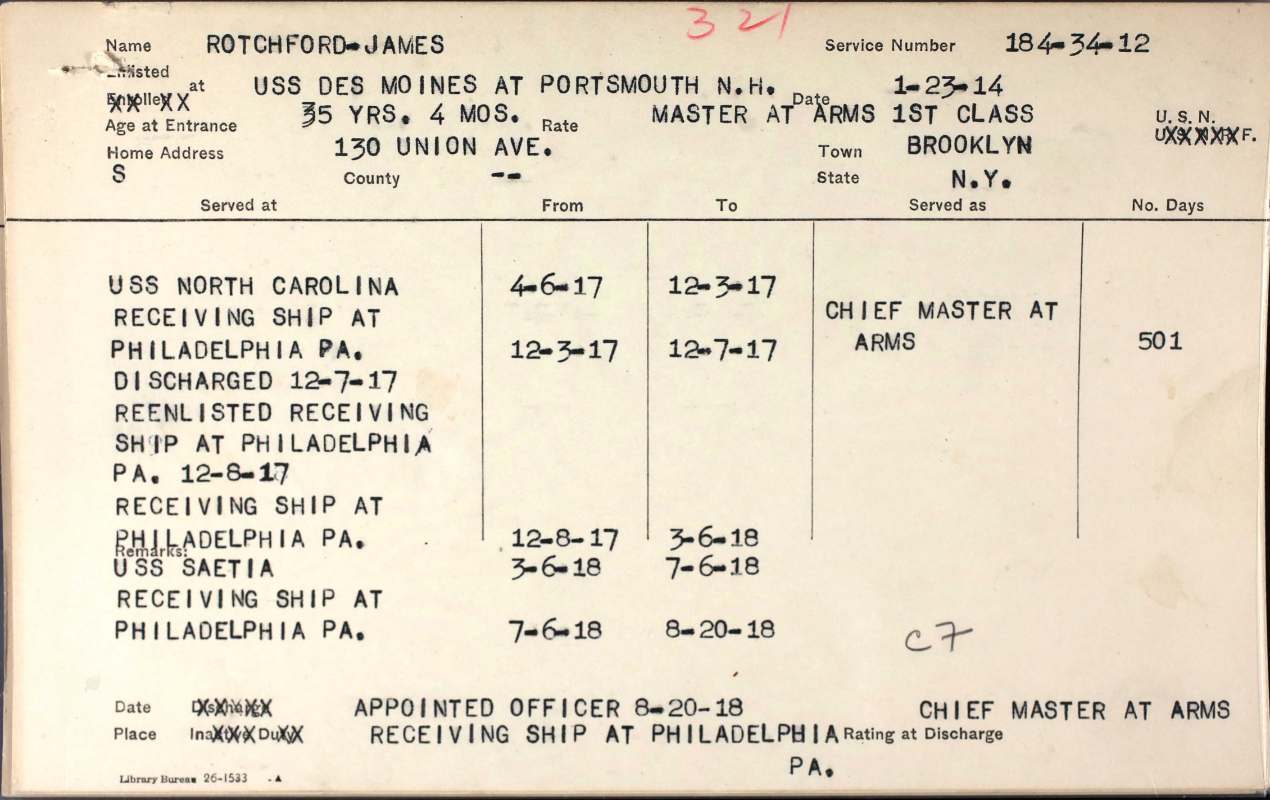 321
Name ROTCHFORD-JAMES Service Number 184-34-12
Enlisted at USS DES MOINES AT PORTSMOUTH N.H. Date 1-23-14
Age at Entrance 35 YRS. 4 MOS. Rate MASTER AT ARMS 1ST CLASS U. S. N.
Home Address 130 UNION AVE. Town BROOKLYN
S County -- State N.Y.
Served at From To Served as No. Days
USS NORTH CAROLINA 4-6-17 12-3-17
RECEIVING SHIP AT CHIEF MASTER AT
PHILADELPHIA PA. 12-3-17 12-7-17 ARMS 501
DISCHARGED 12-7-17
REENLISTED RECEIVING
SHIP AT PHILADELPHIA
PA. 12-8-17
RECEIVING SHIP AT
PHILADELPHIA PA. 12-8-17 3-6-18
Remarks:
USS SAETIA 3-6-18 7-6-18
RECEIVING SHIP AT
PHILADELPHIA PA. 7-6-18 8-20-18
C7
Date APPOINTED OFFICER 8-20-18 CHIEF MASTER AT ARMS
Place RECEIVING SHIP AT PHILADELPHIA Rating at Discharge
PA.
Library Bureau 26-1533 .A